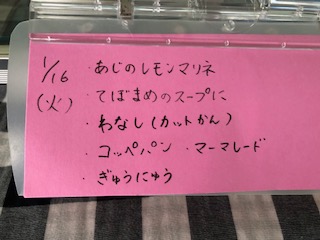 1/16 ・あじのレモンマリネ
(火) ・てぼまめのスープに
・わなし(カットかん)
・コッペパン ・マーマレード
・ぎゅうにゅう